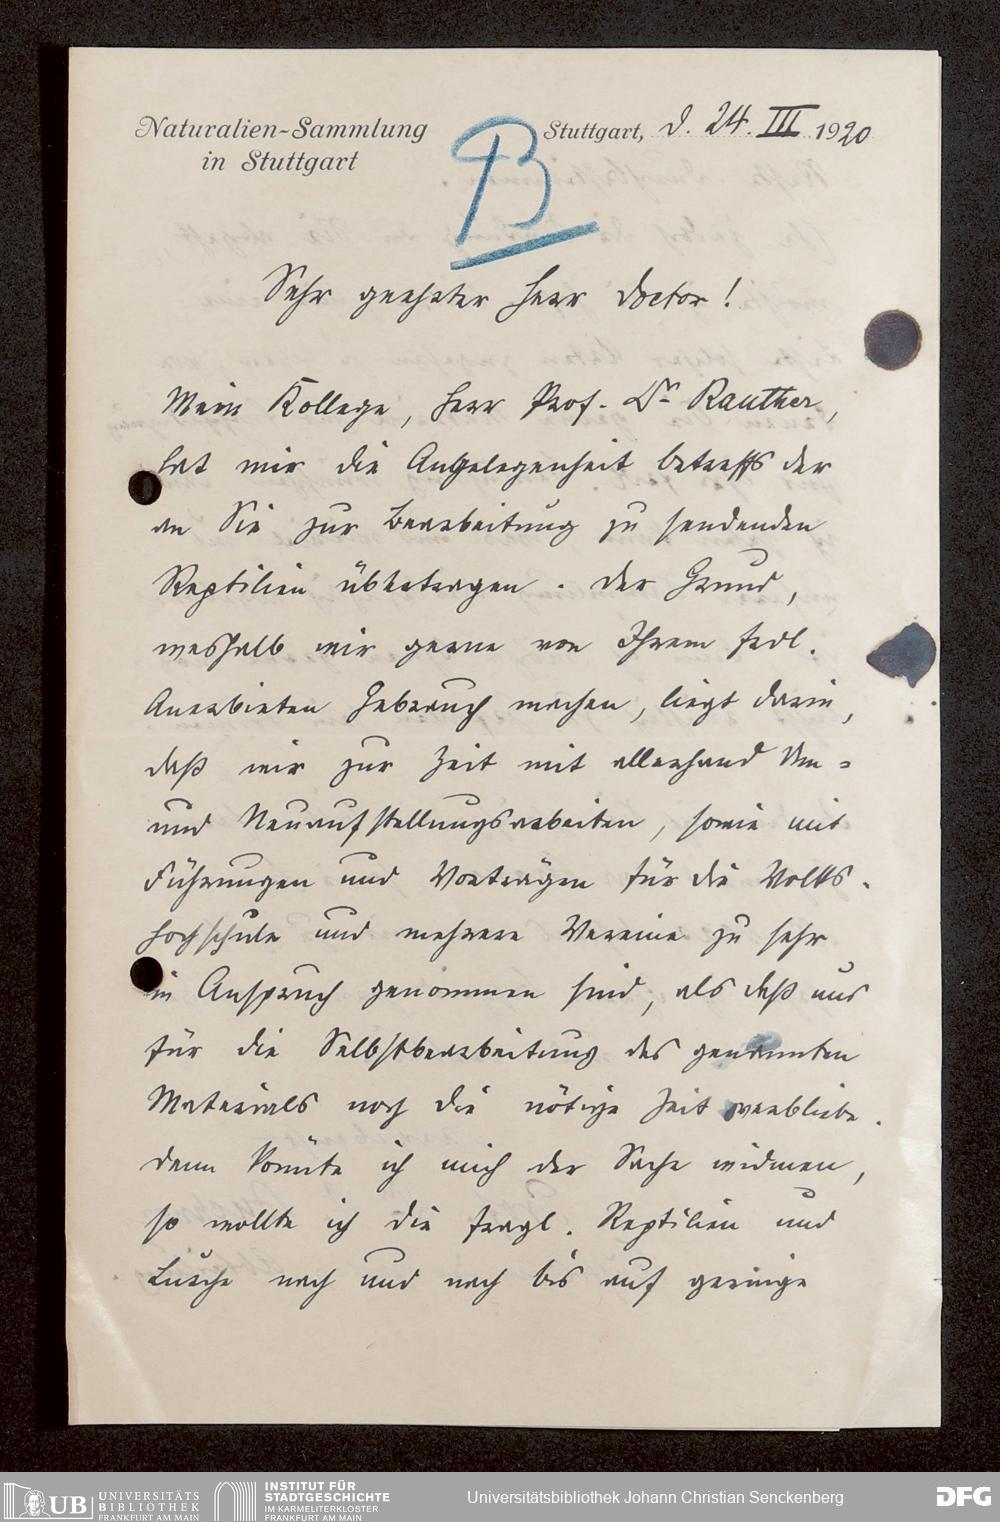 Naturalien-Sammlung
in Stuttgart
Stuttgart, d. 24. III 1920
B
Sehr geehrter Herr Doctor!
Mein Kollege, Herr Prof. Dr Rauther,
hat mir die Angelegenheit betreffs der
an Sie zur Bearbeitung zu sendenden
Reptilien übertragen. Der Grund,
weshalb wir gerne von Ihrem frdl.
Anerbieten Gebrauch machen, liegt darin,
daß wir zur Zeit mit allerhand Um-
und Neuaufstellungsarbeiten, sowie mit
Führungen und Vorträgen für die Volks-
hochschule und mehrere Vereine zu sehr
in Anspruch genommen sind, als daß uns
für die Selbstbearbeitung des genannten
Materials noch die nötige Zeit verbliebe.
Denn könnte ich mich der Sache widmen,
so wollte ich die fragl. Reptilien und
Lurche nach und nach bis auf geringe
UB UNIVERSITÄTS
BIBLIOTHEK
FRANKFURT AM MAIN
INSTITUT FÜR
STADTGESCHICHTE
IM KARMELITERKLOSTER
FRANKFURT AM MAIN
Universitätsbibliothek Johann Christian Senckenberg
DFG